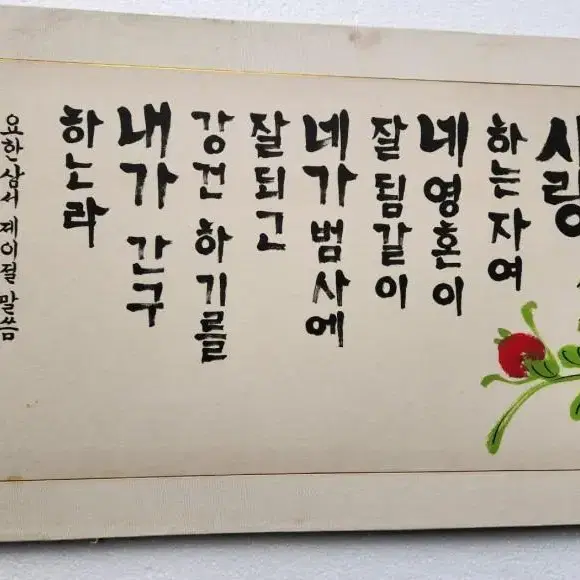 사랑
하는 자여
네 영혼이
잘 됨 같이
네가 범사에
잘 되고
강건 하기를
내가 간구
하노라
요한삼서 제이절 말씀